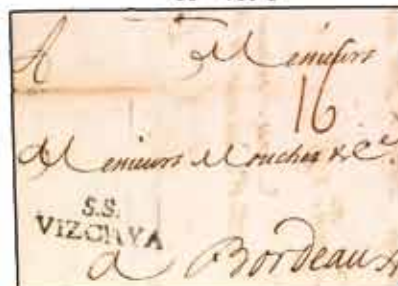 A Messieurs
16
Messieurs Mouchet & Ce.
S.S.
VIZCAYA
a Bordeaux